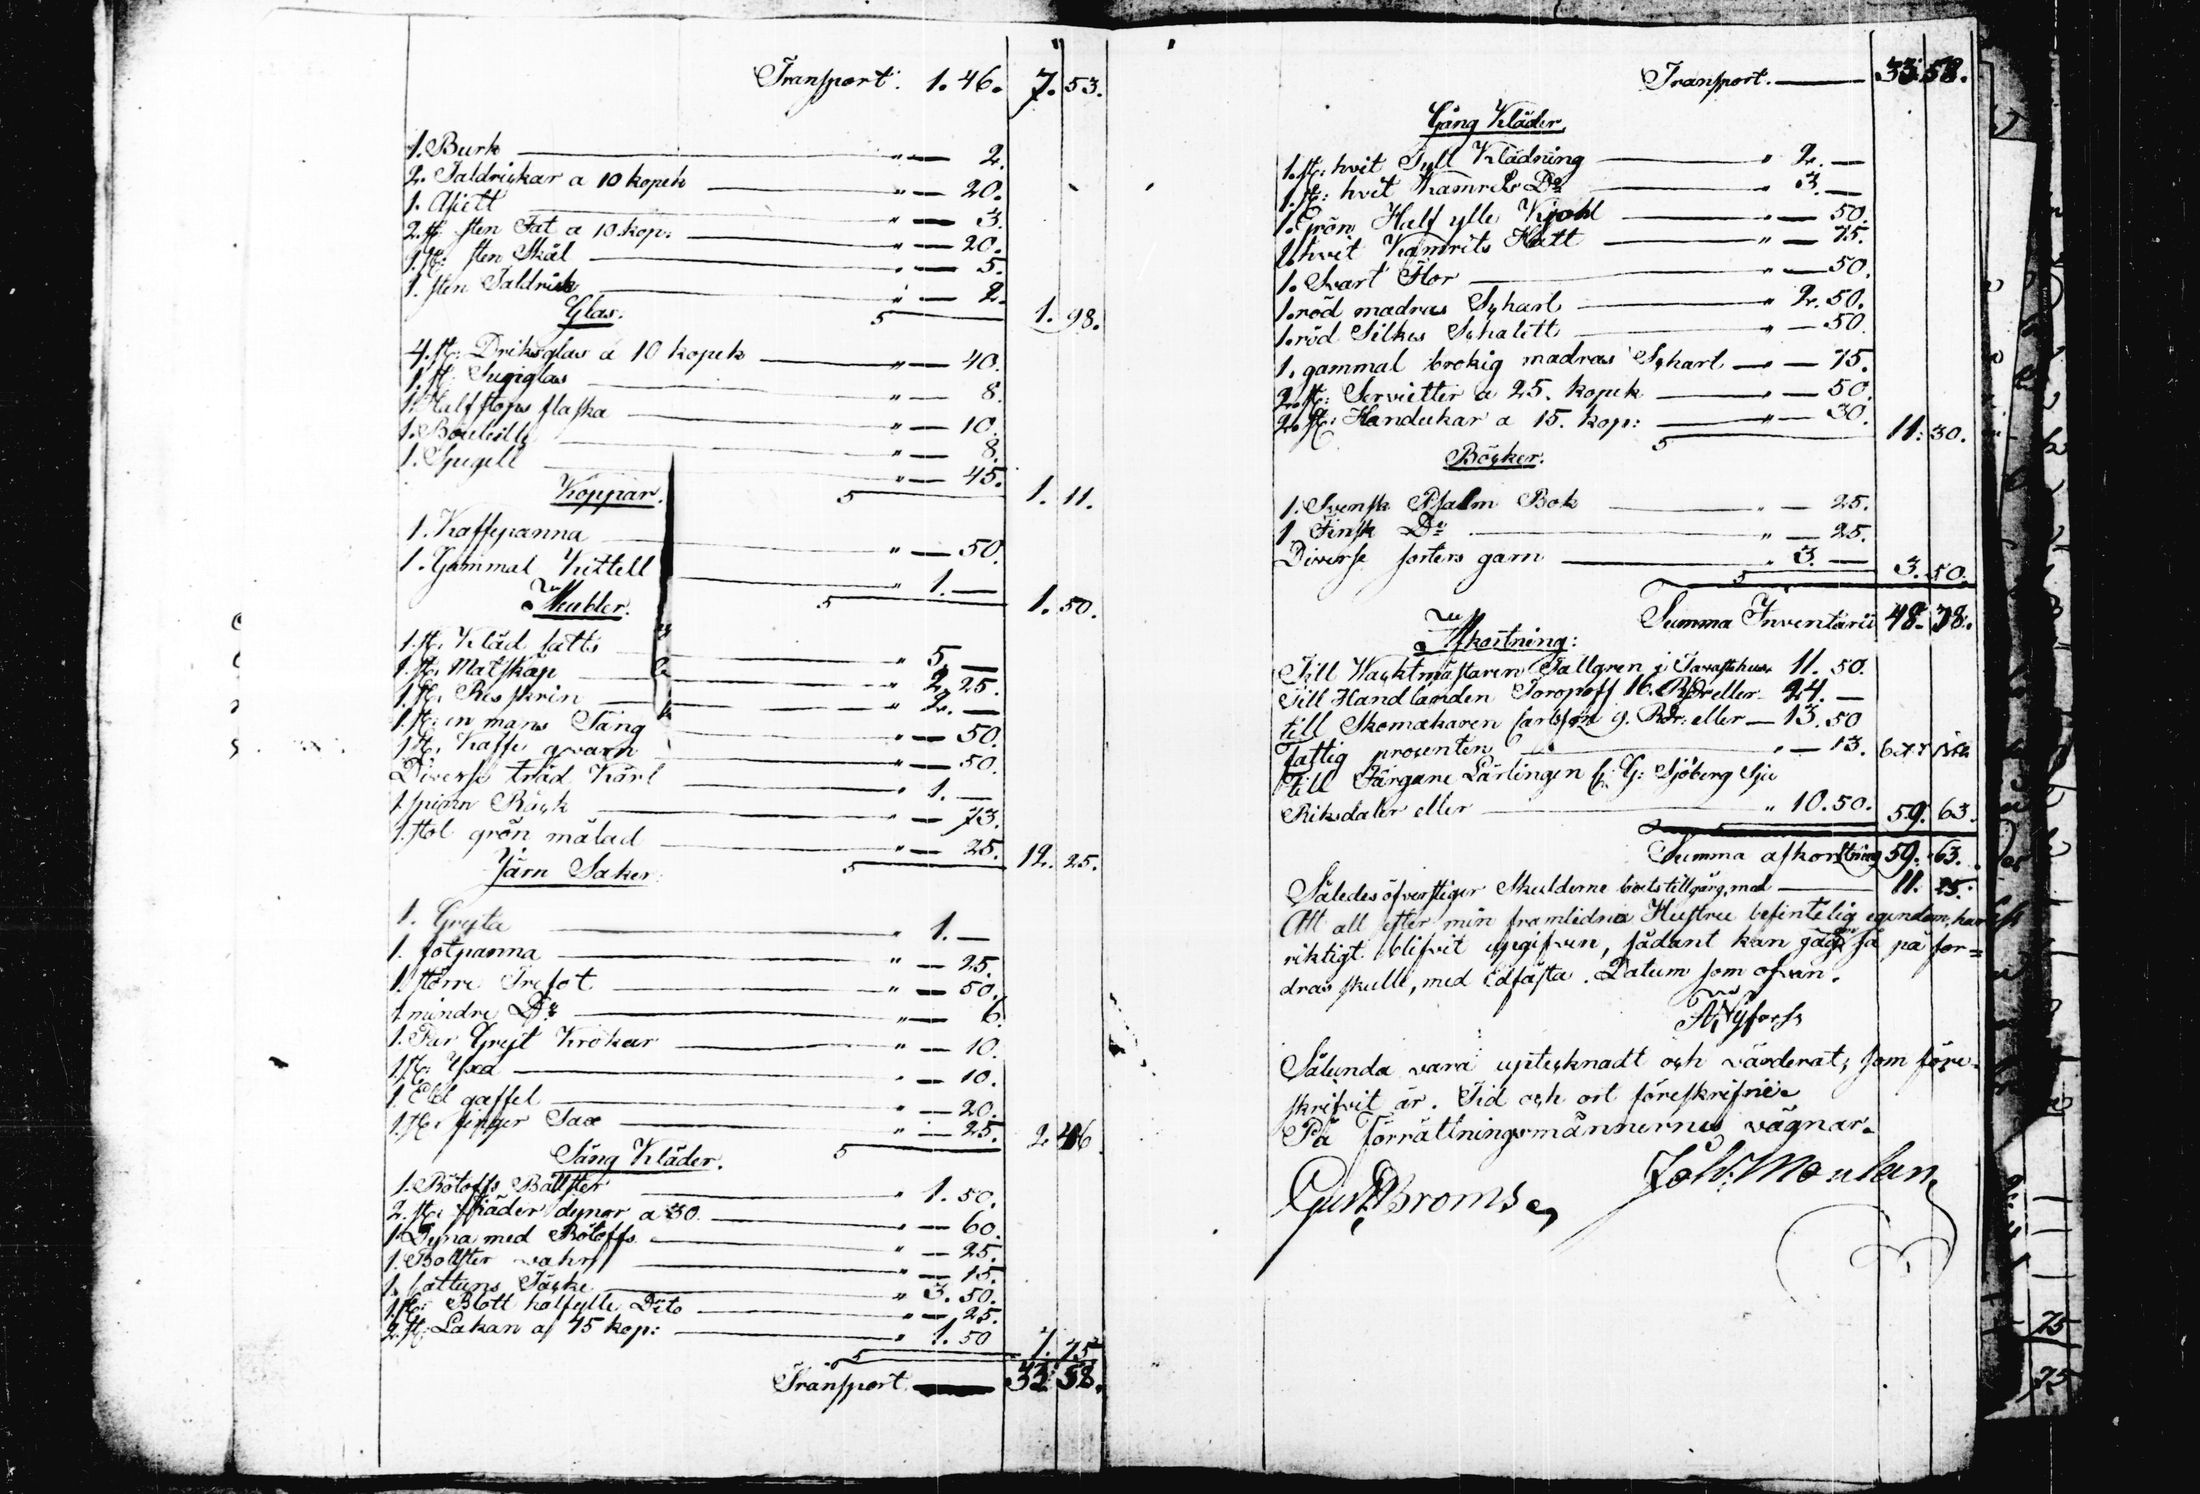 Transport. 1. 46. 7. 53.
1. Burk " — 2.
2. Taldrickar a 10 kopek " — 20.
1. Asiett " — 3.
2. st: sten Fat a 10 kop: " — 20.
1. st: sten Skål " — 5.
1. sten Taldrick " — 2.
Glas. 1. 98.
4. st: Driksglas a 10 kopek " — 40.
1. st: Sugiglas " — 8.
1. Half stops flaska " — 10.
1. Bouteille " — 8.
1. Spegell " — 45.
Koppar. 1. 11.
1. Kaffepanna " — 50.
1. Gammal Kittell " 1. —
Meubler. 1. 50.
1. st: Kläd " 5. —
1. st: Matskåp " 2. 25.
1. st: Res skrin " 2. —
1. st: en mans Säng " — 50.
1 st: Kaffe qvarn " — 50.
Diverse träd Kärl " 1. —
1 spinn Råck " — 73.
1. stol grön målad " — 25.
Järn Saker. 12. 25.
1. Gryta " 1. —
1. fotpanna " — 25.
1. större Trefot " — 50.
1 mindre Do " — 6.
1. Par Gryt Krokar " — 10.
1 st: Yxa " — 10.
1 Eld gaffel " — 20.
1. st: finger Sax " — 25.
Säng Kläder. 2. 46
1. Bolster " 1. 50.
2. st: fjäder dynor a 30. " — 60.
1 Dyna med " — 25.
1. Bollster vahr " — 15.
1. Cattuns Täcke " 3. 50.
1 st: Blått halfylle Dito " — 25.
2. st: Lakan af 75 kop: " 1. 50
7. 75
Transport. 33. 58.
Transport. — 33. 58.
Gång Kläder.
1. st: hvit Tyll Klädning " 2. —
1 st: hvit Kamrits Do " 3. —
1. Grön Half ylle Kjohl " — 50.
1. hvit Kamrits Hatt " — 75.
1. Svart Flor " — 50.
1. röd madras Scharl " 2. 50.
1. röd Silkes Schalett " — 50.
1. gammal brokig madras Scharl " — 75.
2. st: Servietter a 25. kopek " — 50.
2. st: Handukar a 15. kop: " — 30.
11. 30.
Böcker.
1. Svensk Psalm Bok " — 25.
1 Finsk Do " — 25.
Diverse sorters garn " 3. —
3. 50.
Summa Inventarii 48. 38.
Afkortning:
Till Wacktmästaren Tallgren i Tavastehus 11. 50.
Till Handlanden Toropoff 16. Rdr eller 24. —
till Skomakaren Carlsson 9. Rdr: eller — 13. 50
Fattig procenten " — 13.
till Färgare Lärlingen C: G: Sjöberg Sju
Riksdaler eller " 10. 50. 59. 63.
Summa afkortning 59. 63.
Således öfverstiger Skulderne boets tillgång, med 11. 25.
Att all efter min framlidna Hustru befintelig egendom, har
riktigt blifvit upgifven, sådant kan jag så på for=
dras skulle, med Edfästa. Datum som ofvan.
Nyforss
Sålunda vara upteknadt och värderat, som före=
skrifvit är. Tid och ort föreskrifne.
På Förrättningsmännernes vägnar.
Gust Broms Joh: Moulen
75
75